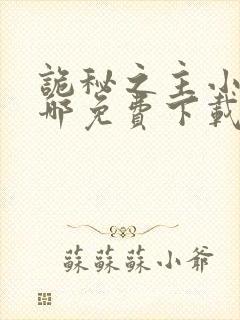 詭秘之主小
哪免費下載
蘇蘇蘇小爺